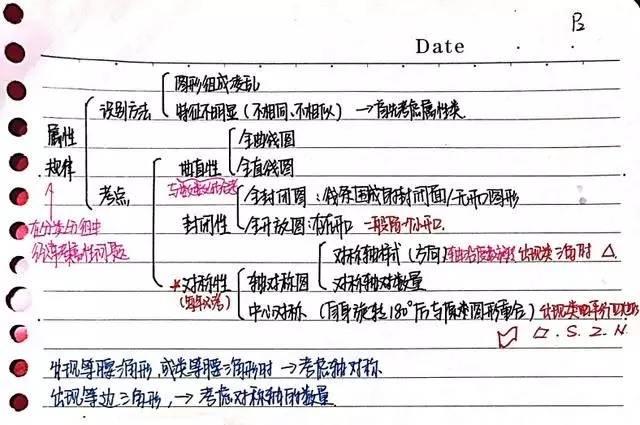 P2
Date
图形组成凌乱
识别方法
特征不明显（不相同、不相似）→首先考虑属性类
属性
规律
全曲线图
曲直性
全直线图
考点
全封闭图：线条围成的封闭面/无开口图形
封闭性
全开放图：有开口 一般留一个小开口
在分类分组中
对称轴样式（方向） 出现类三角时 △
*对称性
轴对称图
对称轴对数量
（每年必考）
中心对称（自身旋转180°后与原来图形重合）出现类
▱.S.Z.N.
出现等腰三角形，或类等腰三角形时→考虑轴对称
出现等边三角形，→考虑对称轴的数量